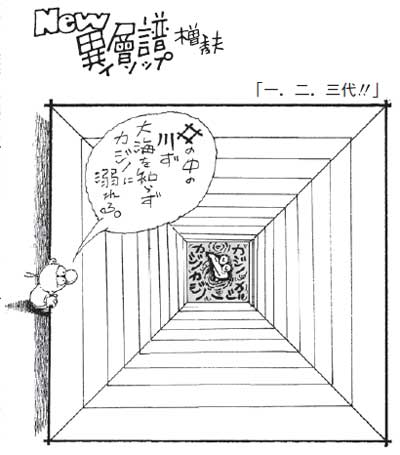 New
異層譜
イソップ
「一．二．三代!!」
井の中の
川ず
大海を知らず
カジノに
溺れる。
カジノ
カジノ
カジノ